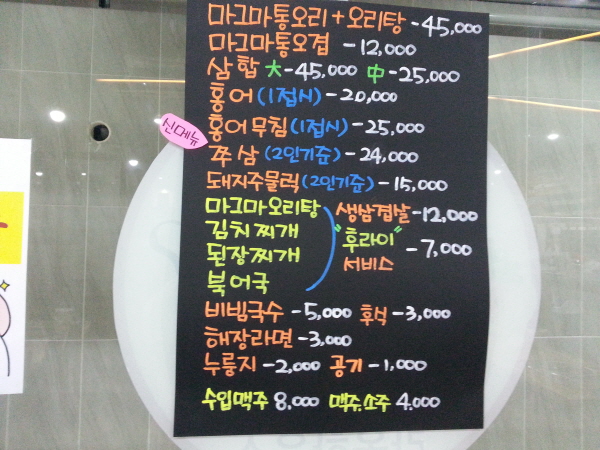 마그마통오리+오리탕-45,000
마그마통오겹 -12,000
삼합 大-45,000 中-25,000
홍어(1접시)-20,000
신메뉴
홍어무침(1접시)-25,000
쭈삼(2인기준)-24,000
돼지주물럭(2인기준)-15,000
마그마오리탕 생삼겹살-12,000
김치찌개 "후라이" -7,000
된장찌개 서비스
북어국
비빔국수-5,000 후식-3,000
해장라면-3,000
누룽지-2,000 공기-1,000
수입맥주 8,000 맥주,소주 4,000